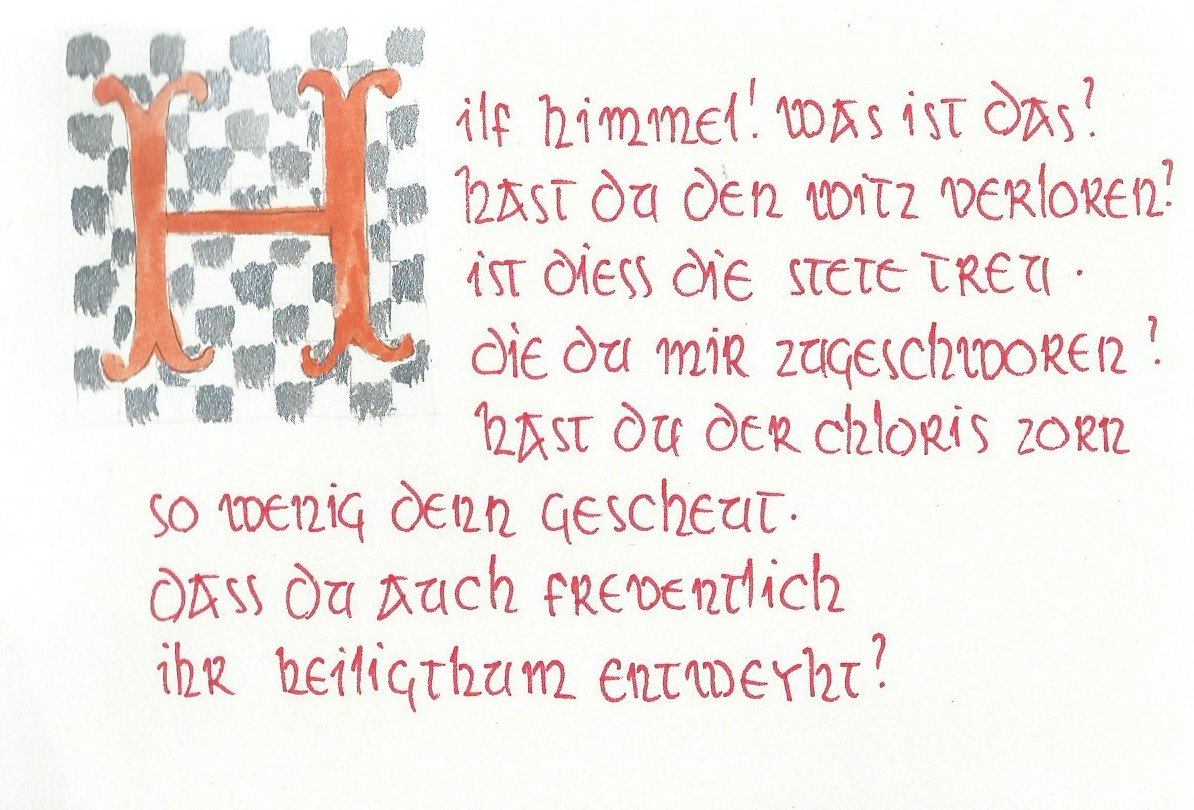 Hilf himmel! was ist das?
hast du den witz verloren?
ist diess die stete treu .
die du mir zugeschworen?
hast du der chloris zorn
so wenig denn gescheut.
dass du auch freventlich
ihr heiligthum entweyht?